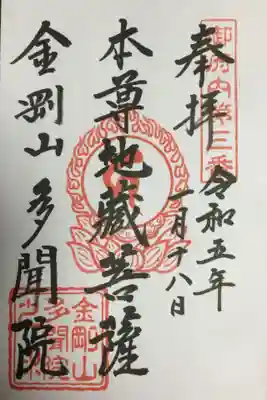 奉拝
令和五年
一月十八日
本尊地蔵菩薩
金剛山多聞院
御府内第三番
金剛山
多聞院